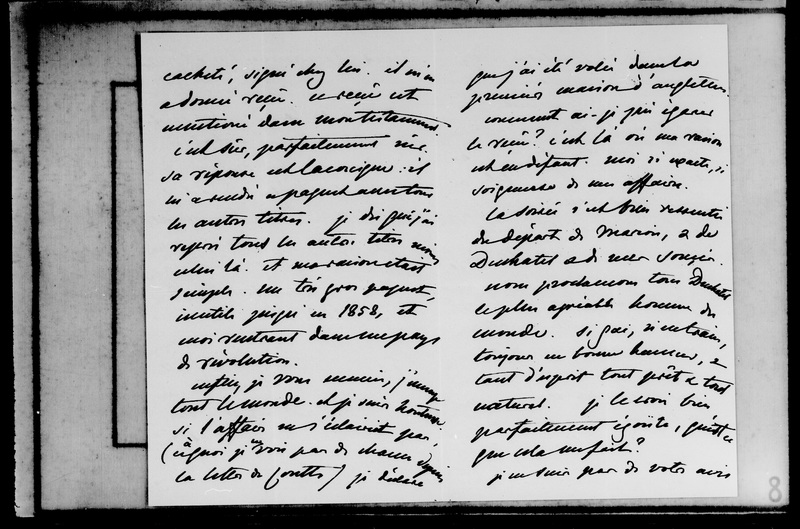 cacheté, signé chez lui. il m'en
a donné reçu. ce reçu est
mentionné dans mon testament
c'est sûr, parfaitement sûr.
sa réponse est laconique: il
m'a rendu ce paquet avec tous
les autres titres. je dis que j'ai
repris tous les autres titres moins
celui là. et ma raison était
simple. un très gros paquet,
inutile jusqu'en 1858, et
moi rentrant dans un pays
de révolution.
enfin je vous ennuie, j'ennuye
tout le monde. et je suis honteuse
si l'affaire ne s'éclaircit pas,
(à quoi je ne vois pas de chance depuis
la lettre de Coutts) je déclare
que j'ai été volée dans la
première maison d'angleterre.
comment ai-je pu égarer
le reçu? c'est là où ma raison
est en défaut. moi si exacte, si
soigneuse de mes affaires.
La soirée s'est bien ressentie
du départ de Marion, & de
Duchatel a dû s'en
nous proclamons tous Duchatel
le plus agréable homme du
monde. si gai, si en train,
toujours en bonne humeur, &
tant d'esprit tout prêt & tout
naturel. je le crois bien
parfaitement égoïste, qu'est ce
que cela me fait?
je ne suis pas de votre avis
8